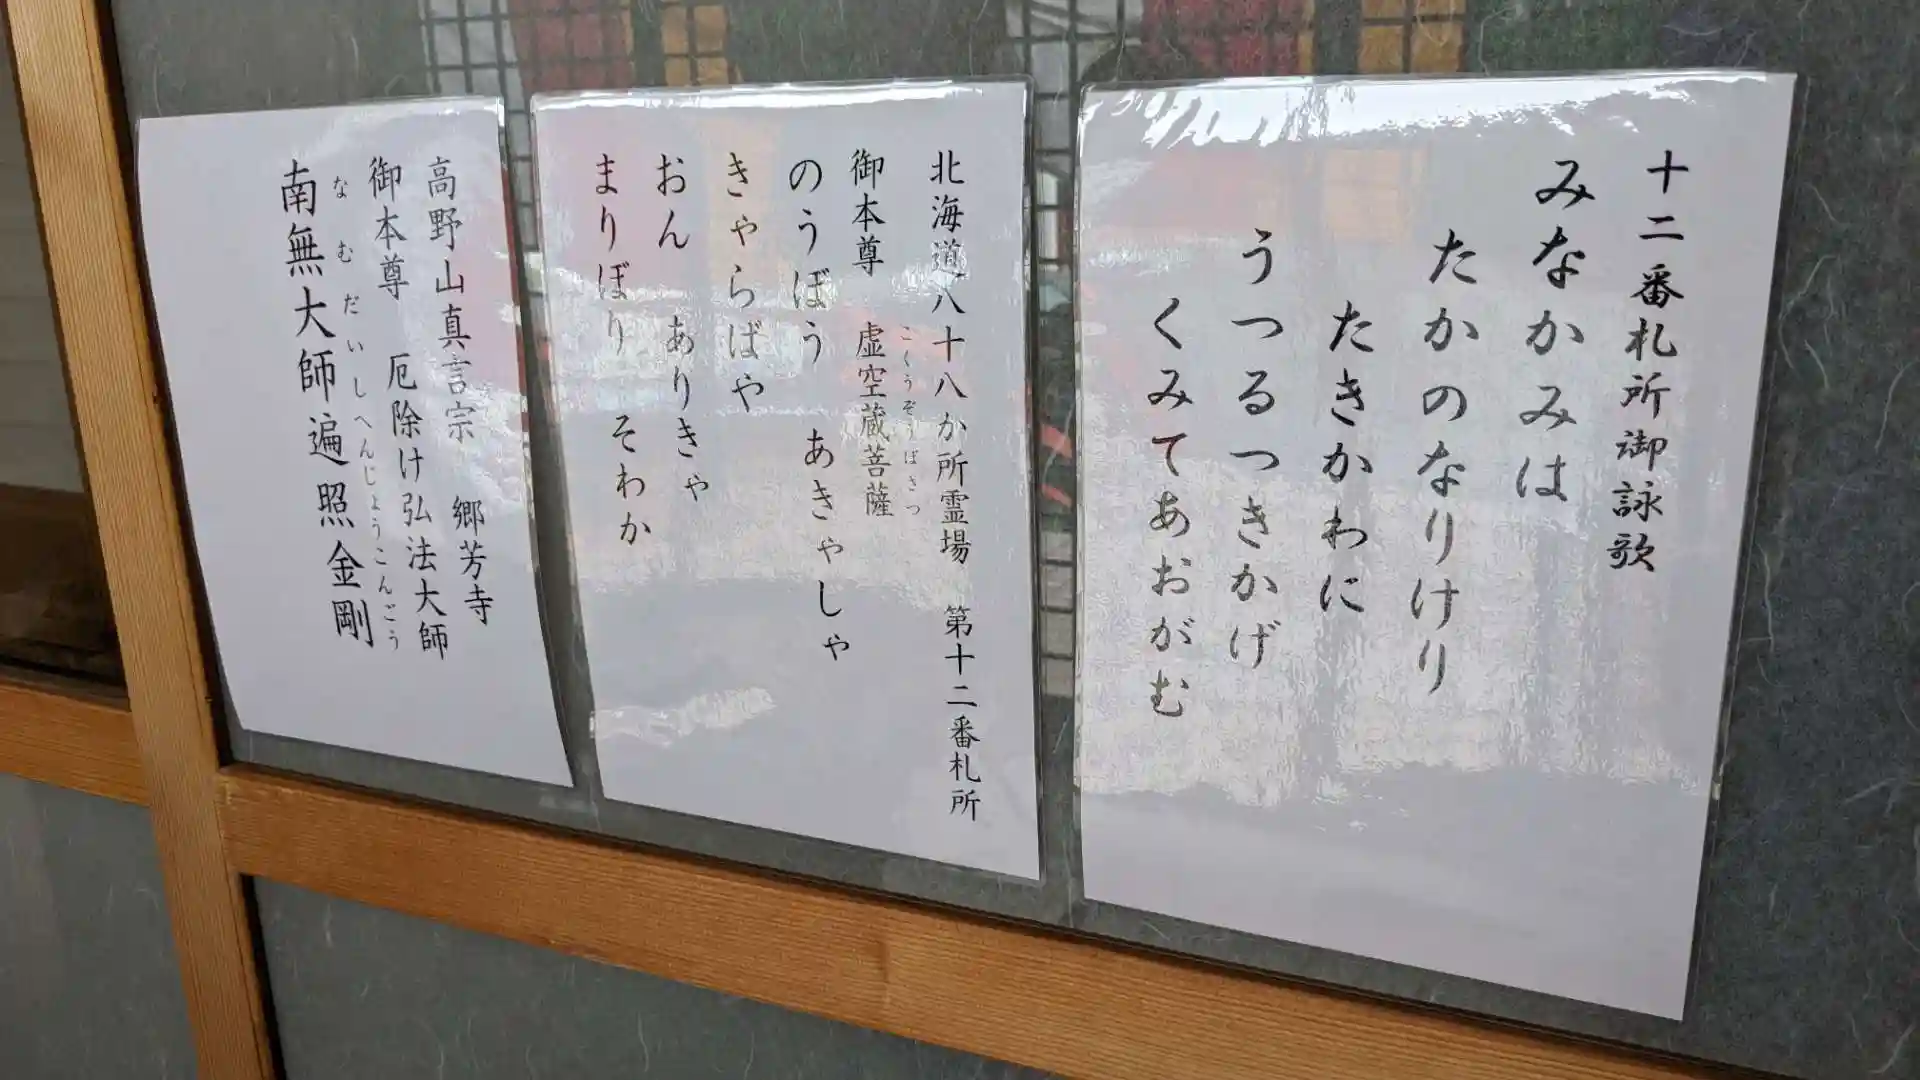 十二番札所御詠歌
みなかみは
たかのなりけり
たきかわに
うつるつきかげ
くみてあおがむ
北海道八十八か所霊場 第十二番札所
御本尊 虚空蔵菩薩
こくうぞうぼさつ
のうぼう あきゃしゃ
きゃらばや
おん ありきゃ
まりぼり そわか
高野山真言宗 郷芳寺
御本尊 厄除け弘法大師
なむだいしへんじょうこんごう
南無大師遍照金剛